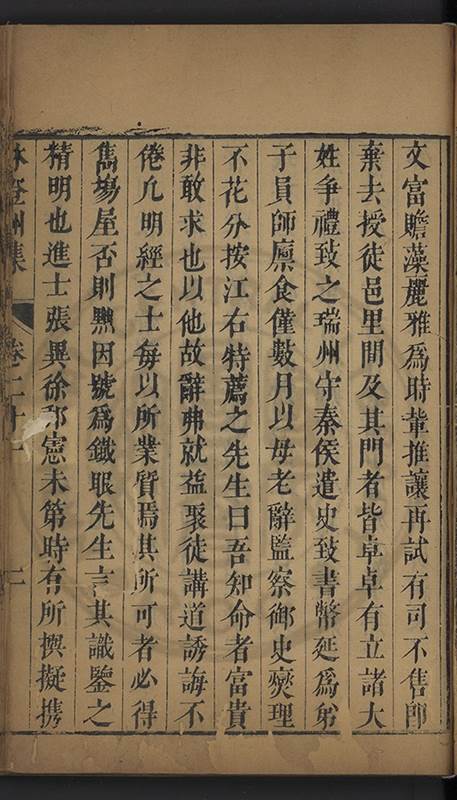 文富贍藻麗雅為時輩推讓再試有司不售即
棄去授徒邑里間及其門者皆卓卓有立諸大
姓爭禮致之瑞州守秦侯遣史致書幣延為弟
子員師廩食僅數月以母老辭監察御史爕理
不花分按江右特薦之先生曰吾知命者富貴
非敢求也以他故辭弗就益聚徒講道誘誨不
倦凡明經之士每以所業質焉其所可者必得
雋場屋否則黜因號為鐵眼先生言其識鑒之
精明也進士張異徐邦憲未第時有所撰擬携
林登州集
卷二十
二